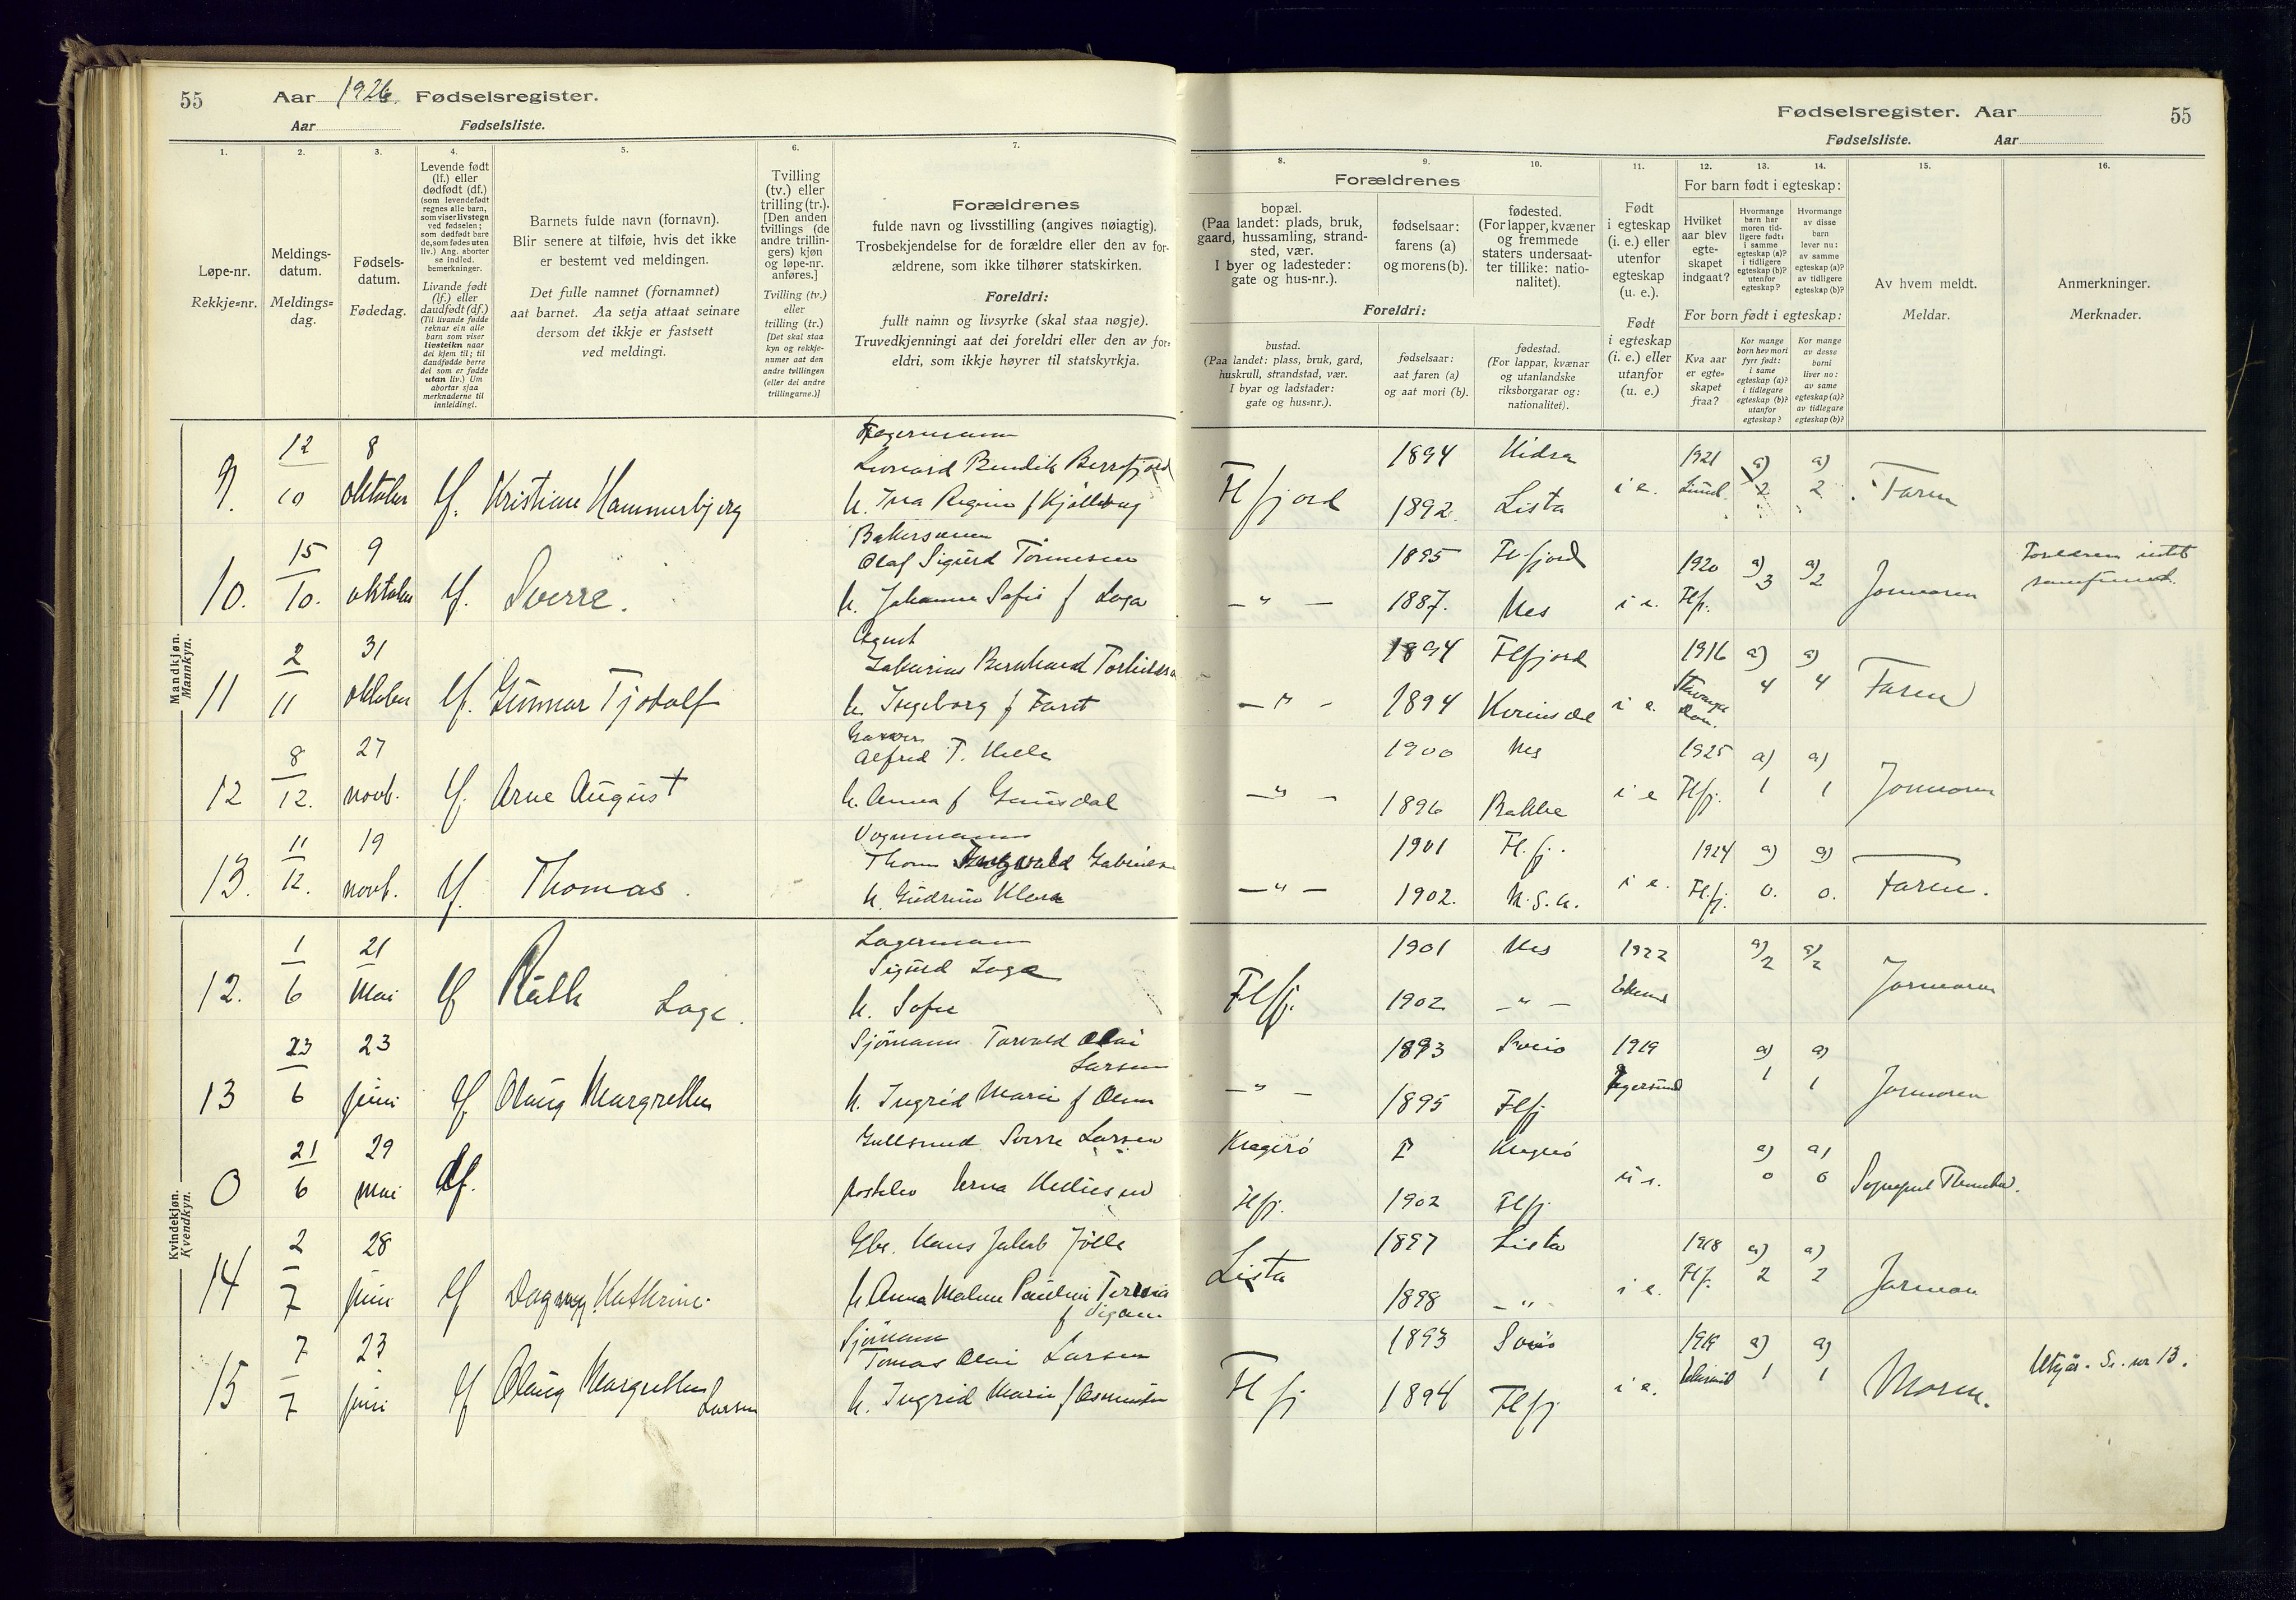 55
Aar 1926. Fødselsregister.
Aar Fødselsliste.
1.
2.
3.
4.
5.
6.
7.
Løpe-nr.
Rekkje=nr.
Meldings-
datum.
Meldings=
dag.
Fødsels-
datum.
Fødedag.
Levende født
(lf.) eller
dødfødt (df.)
(som levendefødt
regnes alle barn,
som viser livstegn
ved fødselen;
som dødfødt bare
de, som fødes uten
liv.) Ang. aborter
se indled.
bemerkninger.
Livande født
(lf.) eller
daudfødt (df.)
(Til livande fødde
reknar ein alle
barn som viser
livsteikn naar
dei kjem til; til
daudfødde berre
dei som er fødde
utan liv.) Um
abortar sjaa
merknaderne til
innleidingi.
Barnets fulde navn (fornavn).
Blir senere at tilføie, hvis det ikke
er bestemt ved meldingen.
Det fulle namnet (fornamnet)
aat barnet. Aa setja attaat seinare
dersom det ikkje er fastsett
ved meldingi.
Tvilling
(tv.) eller
trilling (tr.).
[Den anden
tvillings (de
andre trillin-
gers) kjøn
og løpe-nr.
anføres.]
Tvilling (tv.)
eller
trilling (tr.)
[Det skal staa
kyn og rekkje-
numer aat den
andre tvillingen
(eller dei andre
trillingarne.)]
Forældrenes
fulde navn og livsstilling (angives nøiagtig).
Trosbekjendelse for de forældre eller den av for-
ældrene, som ikke tilhører statskirken.
Foreldri:
fullt namn og livsyrke (skal staa nøgje).
Truvedkjenningi aat dei foreldri eller den av for=
eldri, som ikkje høyrer til statskyrkja.
Mandkjøn.
Mannkyn.
9. 12/10 8 oktober lf. Kristian Hammersbjerg
k. Ina Regine f
10. 15/10. 9 oktober lf. Sverre.
Olaf Sigurd Tønnesen
k. Johanne Sofie f Loga
11 2/11 31 oktober lf. Gunnar Tjodolf
Agent
k. Ingeborg f
12 8/12. 27 novb. lf. Arne August
Alfred T. Helle
k. Anna f
13. 11/12. 19 novb. lf. Thomas.
Vognmann
k. Gudrun Klara
Kvindekjøn.
Kvendkyn.
12. 1/6 21 Mai lf Ruth Loge.
Lagermann
Sigurd Loge
k. Sofie
13 23/6 23 juni lf Olaug Margrethe
Sjømann Torvald Olai
Larsen
k. Ingrid Marie f
0 21/6 29 mai df.
Gullsmed Sverre Larsen
14 2/7 28 juni lf Dagny Kathrine
Hans Jakob Jølle
k Anna Malene Pauline
15 7/7 23 juni lf Olaug Margrethe
Larsen
Sjømann
Tomas Olai Larsen
k. Ingrid Marie f
Fødselsregister. Aar 55
Fødselsliste. Aar
8.
9.
10.
11.
12.
13.
14.
15.
16.
Forældrenes
bopæl.
(Paa landet: plads, bruk,
gaard, hussamling, strand-
sted, vær.
I byer og ladesteder:
gate og hus-nr.).
fødselsaar:
farens (a)
og morens (b).
fødested.
(For lapper, kvæner
og fremmede
staters undersaat-
ter tillike: natio-
nalitet).
Foreldri:
bustad.
(Paa landet: plass, bruk, gard,
huskrull, strandstad, vær.
I byar og ladstader:
gate og hus=nr.).
fødselsaar:
aat faren (a)
og aat mori (b).
fødestad.
(For lappar, kvænar
og utanlandske
riksborgarar og:
nationalitet).
Født
i egteskap
(i. e.) eller
utenfor
egteskap
(u. e.).
Født
i egteskap
(i. e.) eller
utanfor
(u. e.)
For barn født i egteskap:
Hvilket
aar blev
egte-
skapet
indgaat?
Hvormange
barn har
moren tid-
ligere født:
i samme
egteskap (a)?
i tidligere
egteskap (b)?
utenfor
egteskap?
Hvormange
av disse
barn
lever nu:
av samme
egteskap (a)?
av tidligere
egteskap (b)?
For born født i egteskap:
Kva aar
er egte=
skapet
fraa?
Kor mange
born hev mori
fyrr født:
i same
egteskap (a)?
i tidlegare
egteskap (b)?
utanfor
egteskap?
Kor mange
av desse
borni
liver no:
av same
egteskap (a)?
av tidlegare
egteskap (b)?
Av hvem meldt.
Meldar.
Anmerkninger.
Merknader.
Flfjord 1894 Hidra 1892. Lista i e. 1921 Lund. a) 2 a) 2 Faren
— " — 1895 Fl.fjord 1887. Nes i e. 1920 Flfj. a) 3 a) 2 Jormoren
— " — 1894 Flfjord 1894 i e. 1916 a) 4 a) 4 Faren
— " — 1900 Nes 1896 Bakke i e 1925 Flfj. a) 1 a) 1 Jormoren
— " — 1901 Fl.fj. 1902. U.S.A. i e. 1924 Flfj. a) 0. a) 0. Faren.
Flfj. 1901 Nes 1902 — " — 1922 a) 2 a) 2 Jormoren
— " — 1893 1895 Flfj 1919 Egersund a) 1 a) 1 Jormoren
Kragerø Kragerø
Flfj. 1902 Flfj u e. a) 0 a) 0
Lista 1897 Lista 1898 — " — i e. 1918 Flfj. a) 2 a) 2 Jormor
Flfj 1893 1894 Flfj i e. 1919 a) 1 a) 1 Moren. Utgår. Se nr 13.